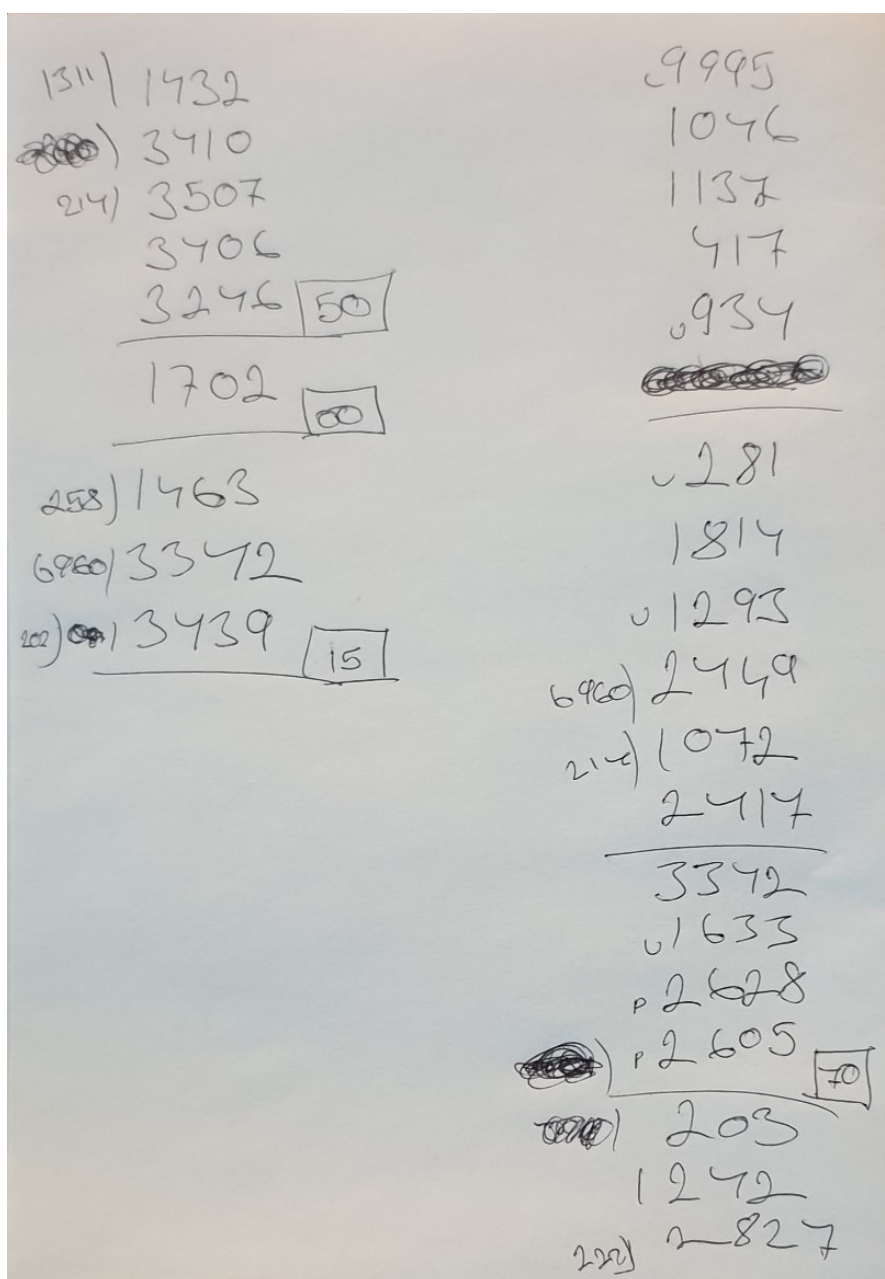 1311) 1432
) 3410
214) 3507
3406
3246 50
1702 00
258) 1463
6960) 3342
202) ) 3439 15
u 9995
1046
1137
417
u 934
u 281
1814
u 1293
6960) 2449
214) 1072
2417
3342
u 1633
P 2628
) P 2605 70
) 203
1242
222) 2827